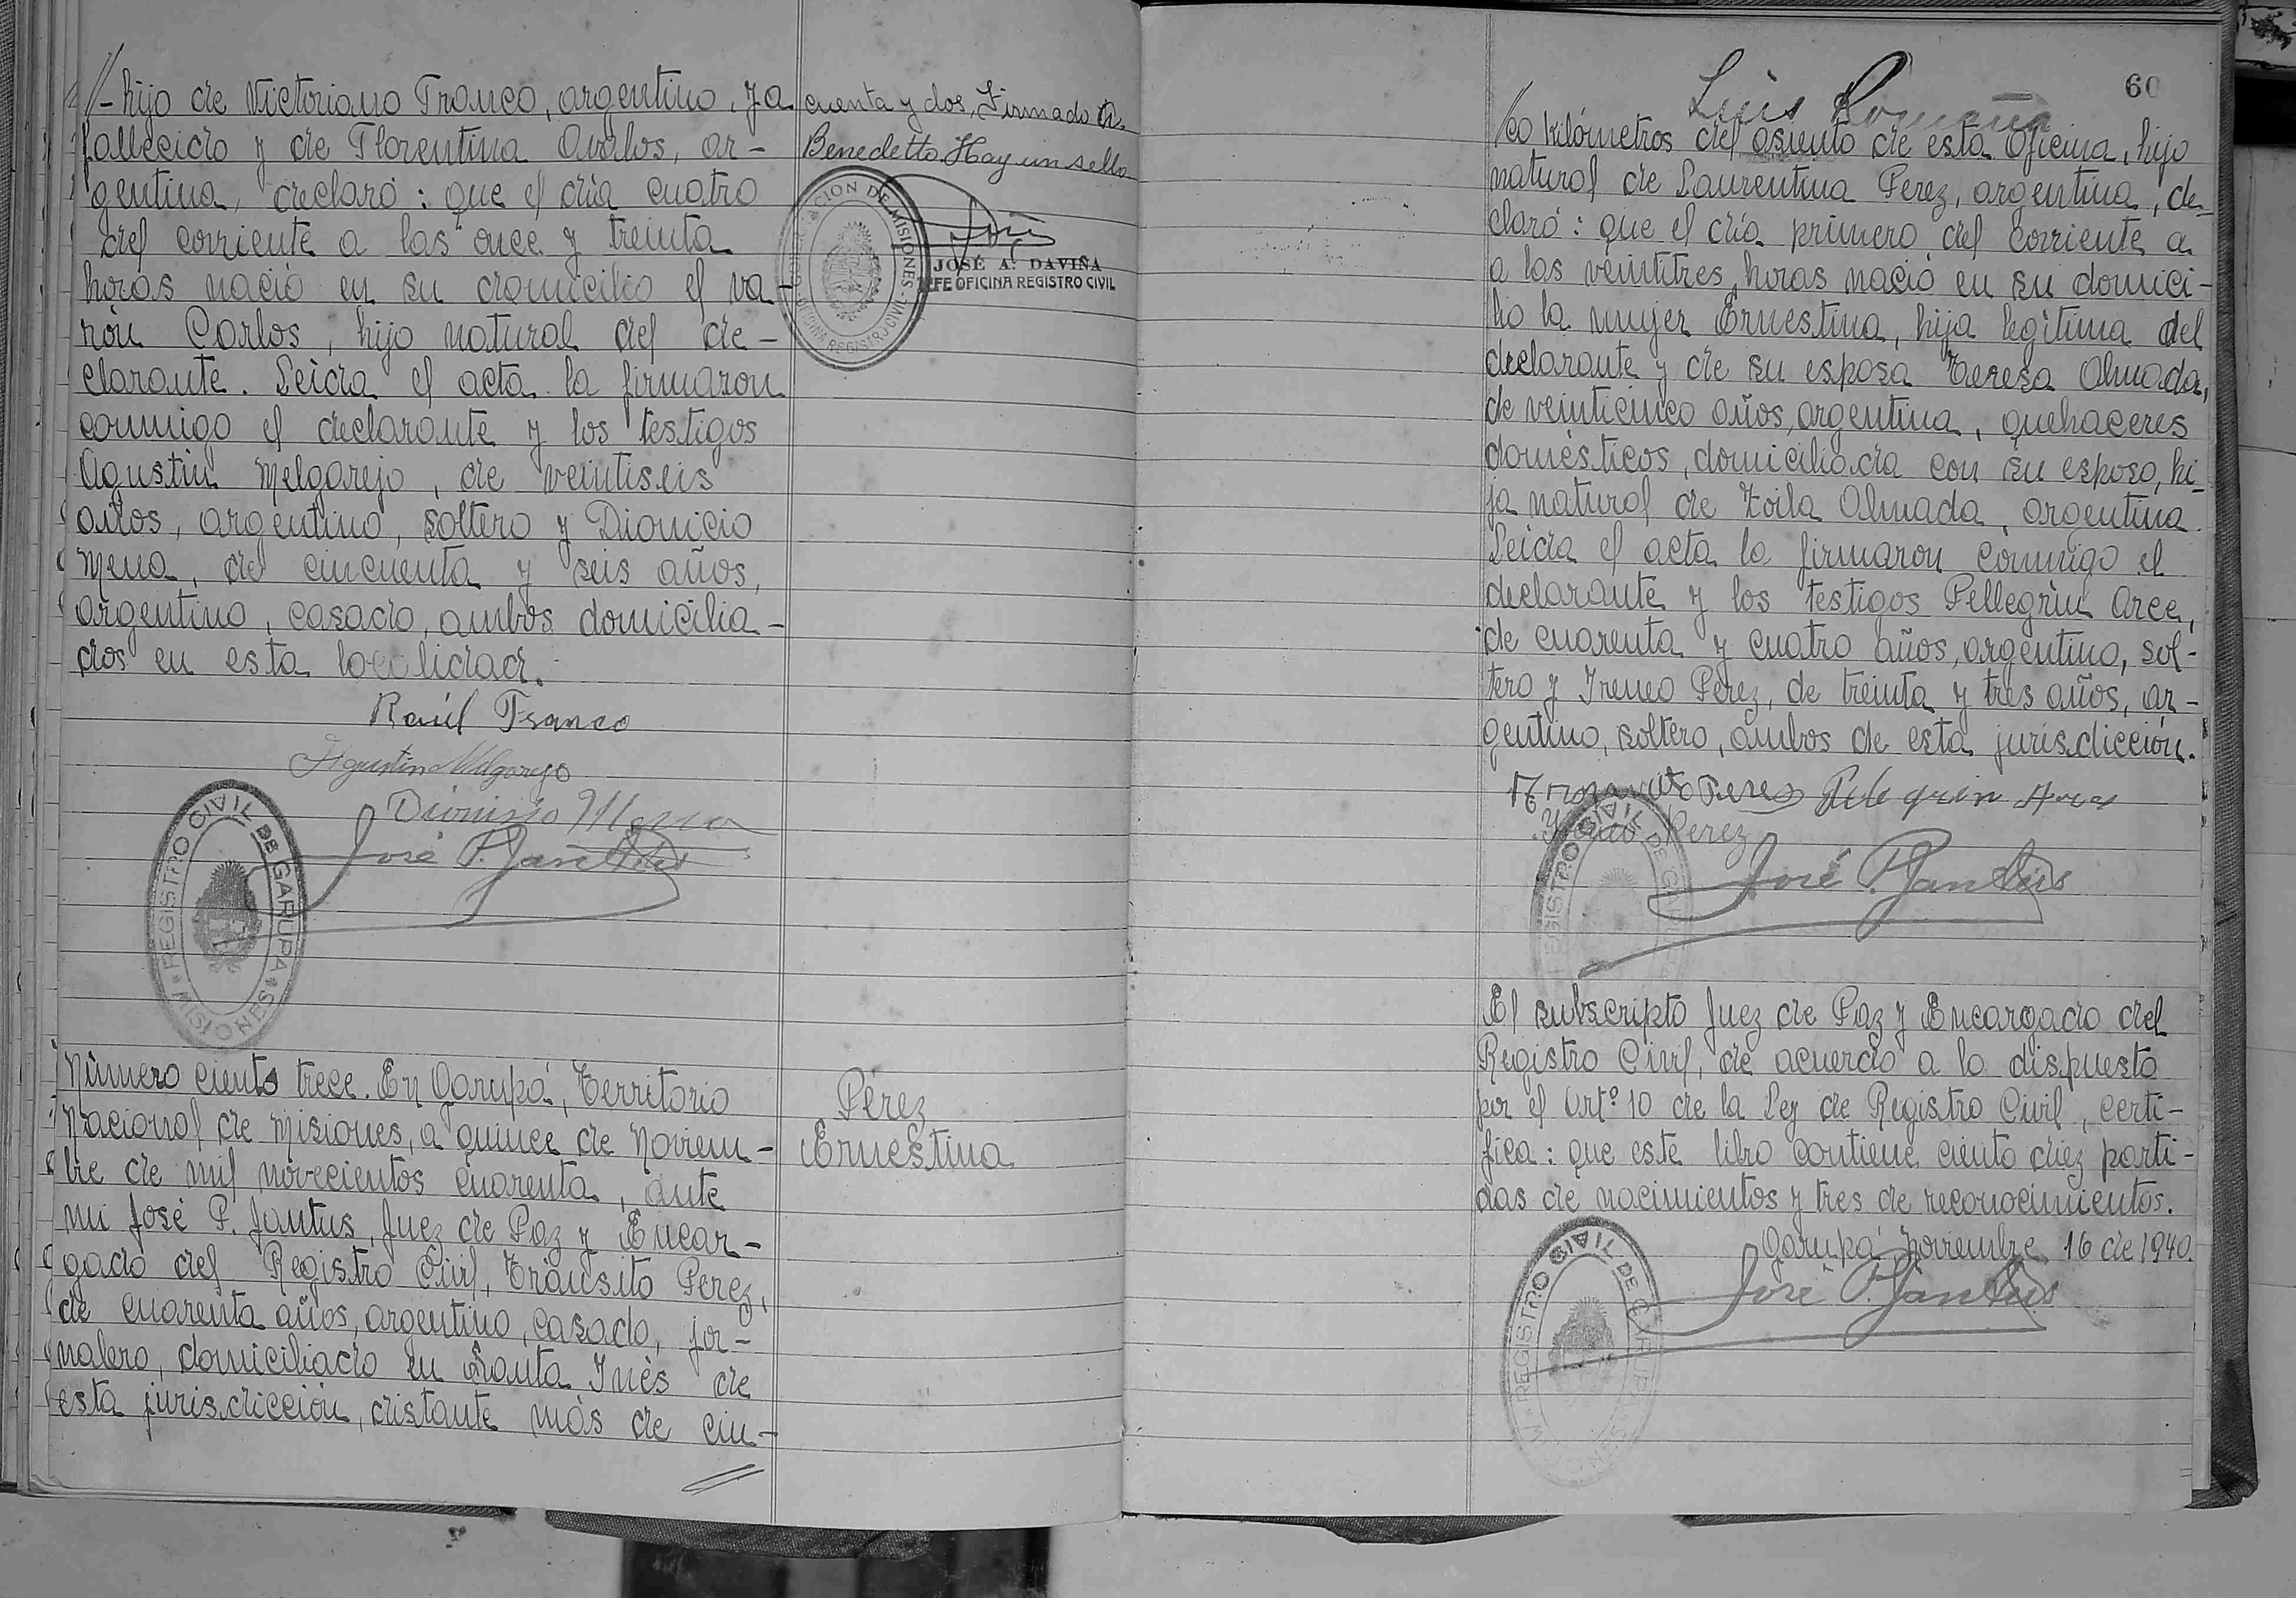 //- hijo de Victoriano Franco, argentino, ya
fallecido y de Florentina Avalos, ar-
gentina, declaró: que el día cuatro
del corriente a las once y treinta
horas nació en su domicilio el va-
rón Carlos, hijo natural del de-
clarante. Leida el acta la firmaron
conmigo el declarante y los testigos
Agustin Melgarejo, de veintiseis
años, argentino, soltero y Dionicio
Mena, de cincuenta y seis años,
argentino, casado, ambos domicilia-
dos en esta localidad.
Raúl Franco
Agustin Melgarejo
Dionisio Mena
José P. Jantus
REGISTRO CIVIL DE GARUPA
MISIONES
cuenta y dos, Firmado A.
Benedetto. Hay un sello
GOBERNACION DE MISIONES
OFICINA REGISTRO CIVIL
JOSÉ A. DAVIÑA
JEFE OFICINA REGISTRO CIVIL
Número ciento trece. En Garupá, Territorio
Nacional de Misiones, a quince de Noviem-
bre de mil novecientos cuarenta, ante
mi José P. Jantus, Juez de Paz y Encar-
gado del Registro Civil, Tránsito Perez,
de cuarenta años, argentino, casado, jor-
nalero, domiciliado en Santa Inés de
esta jurisdicción, distante más de cin-
//
Perez
Ernestina
60
Luis Romaña
//co kilómetros del asiento de esta Oficina, hijo
natural de Laurentina Perez, argentina, de-
claró: que el día primero del corriente a
a las veintitres horas nació en su domici-
lio la mujer Ernestina, hija legitima del
declarante y de su esposa Teresa Almada,
de veinticinco años, argentina, quehaceres
domésticos, domiciliada con su esposo, hi-
ja natural de Zoila Almada, argentina.
Leida el acta la firmaron conmigo el
declarante y los testigos Pellegrin Arce,
de cuarenta y cuatro años, argentino, sol-
tero y Ireneo Perez, de treinta y tres años, ar-
gentino, soltero, ambos de esta jurisdicción.
Peres
Perez
José P. Jantus
REGISTRO CIVIL DE
El subscripto Juez de Paz y Encargado del
Registro Civil, de acuerdo a lo dispuesto
por el Artº 10 de la Ley de Registro Civil, certi-
fica: que este libro contiene ciento diez parti-
das de nacimientos y tres de reconocimientos.
Garupá, Noviembre 16 de 1940.
José P. Jantus
REGISTRO CIVIL DE GARUPA
MISIONES